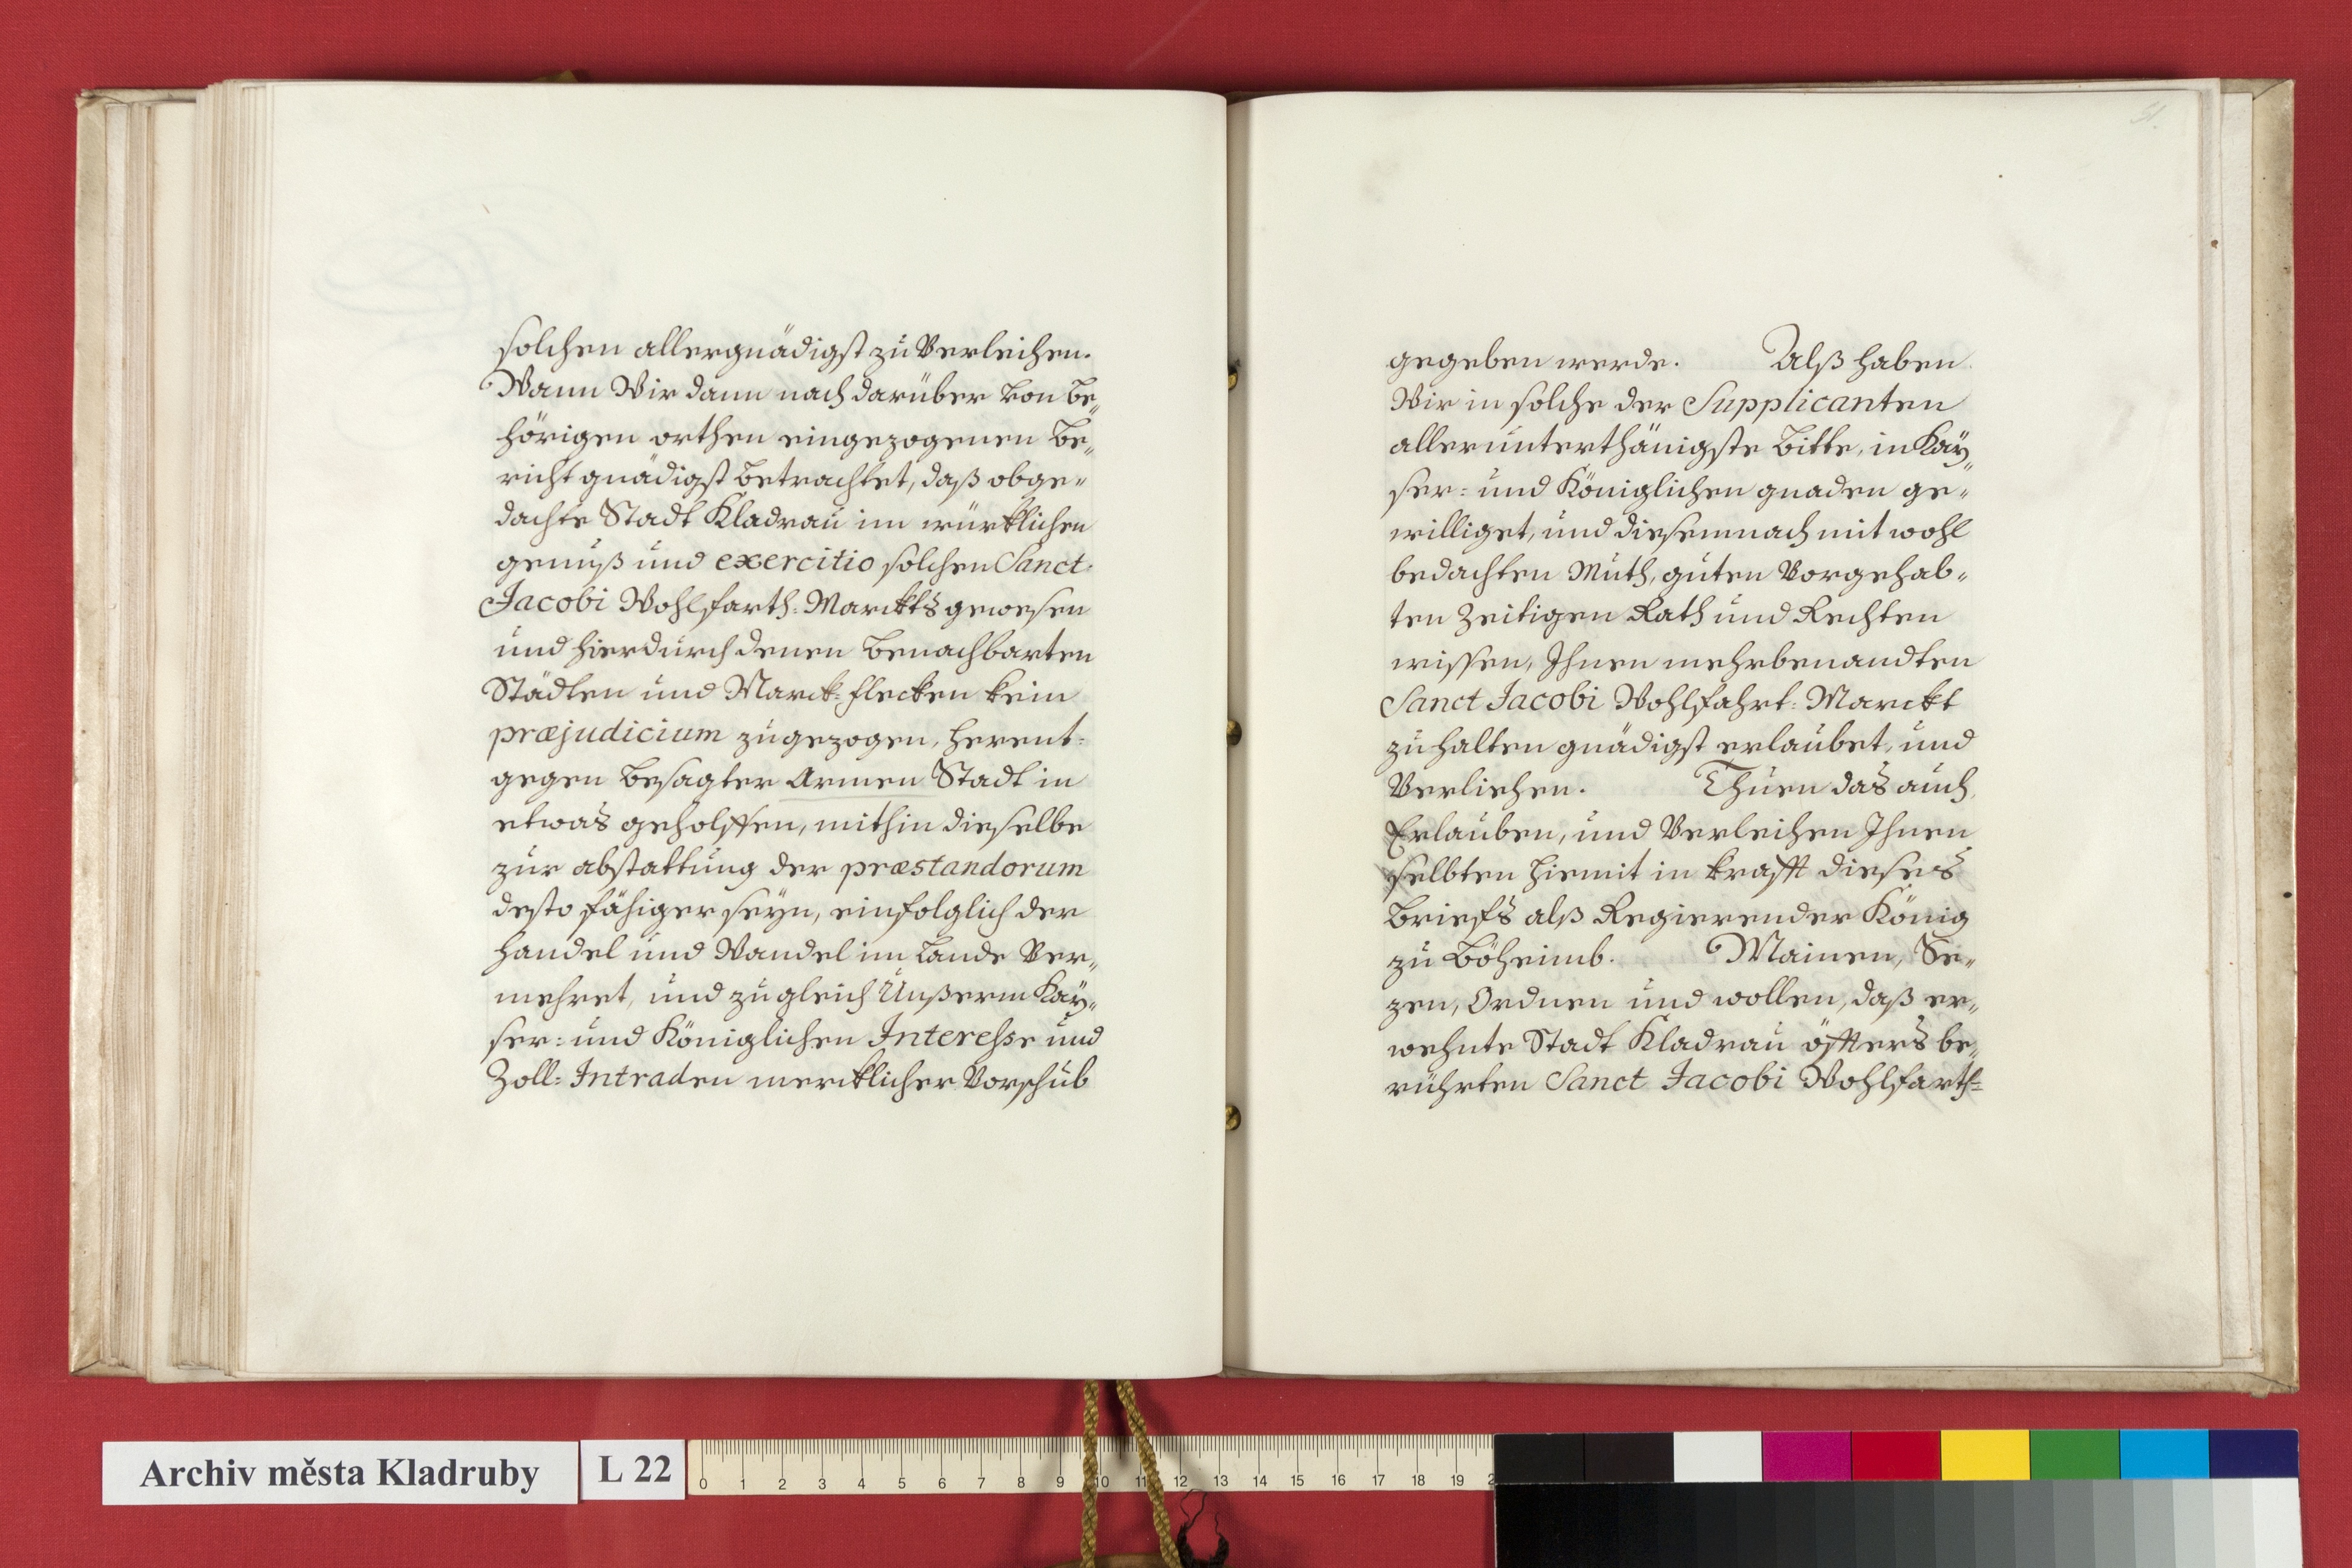 solchen allergnädigst zu Verleihen.
Wann Wir dann nach darüber von be„
hörigen orthen eingezogenen be„
richt gnädigst betrachtet, daß obge„
dachte Stadt Kladrau im würcklichen
genuß und exercitio solchen Sanct
Jacobi Wohlfarth: Marckts gewesen
und hierdurch denen benachbarten
Städten und Marck-flecken kein
præjudicium zugezogen, herent:
gegen besagter Armen Stadt in
etwas geholffen, mithin dieselbe
zur abstattung der præstandorum
desto fähiger seyn, einfolglich der
handel und Wandel im Lande Ver„
mehret, und zugleich Unßerm Kaÿ„
ser: und Königlichen Interehse und
Zoll: Intraden mercklicher Vorschub
gegeben werde. Alß haben
Wir in solche der Supplicanten
allerunterthänigste bitte, in Kaÿ„
ser: und Königlichen gnaden ge„
williget, und diesemnach mit wohl
bedachten Muth, guten Vorgehab„
ten Zeitigen Rath und Rechten
wissen, Ihnen mehrbenandten
Sanct Jacobi Wohlfahrt: Marckt
zu halten gnädigst erlaubet, und
Verliehen. Thuen das auch,
Erlauben, und Verleihen Ihnen
selbten hiemit in krafft dieses
briefs alß Regierender König
zu Böheimb. Mainen, Se„
zen, Ordnen und wollen, daß er„
wehnte Stadt Kladrau öffters be„
rührten Sanct Jacobi Wohlfarth=
Archiv města Kladruby L 22
0 1 2 3 4 5 6 7 8 9 10 11 12 13 14 15 16 17 18 19 2